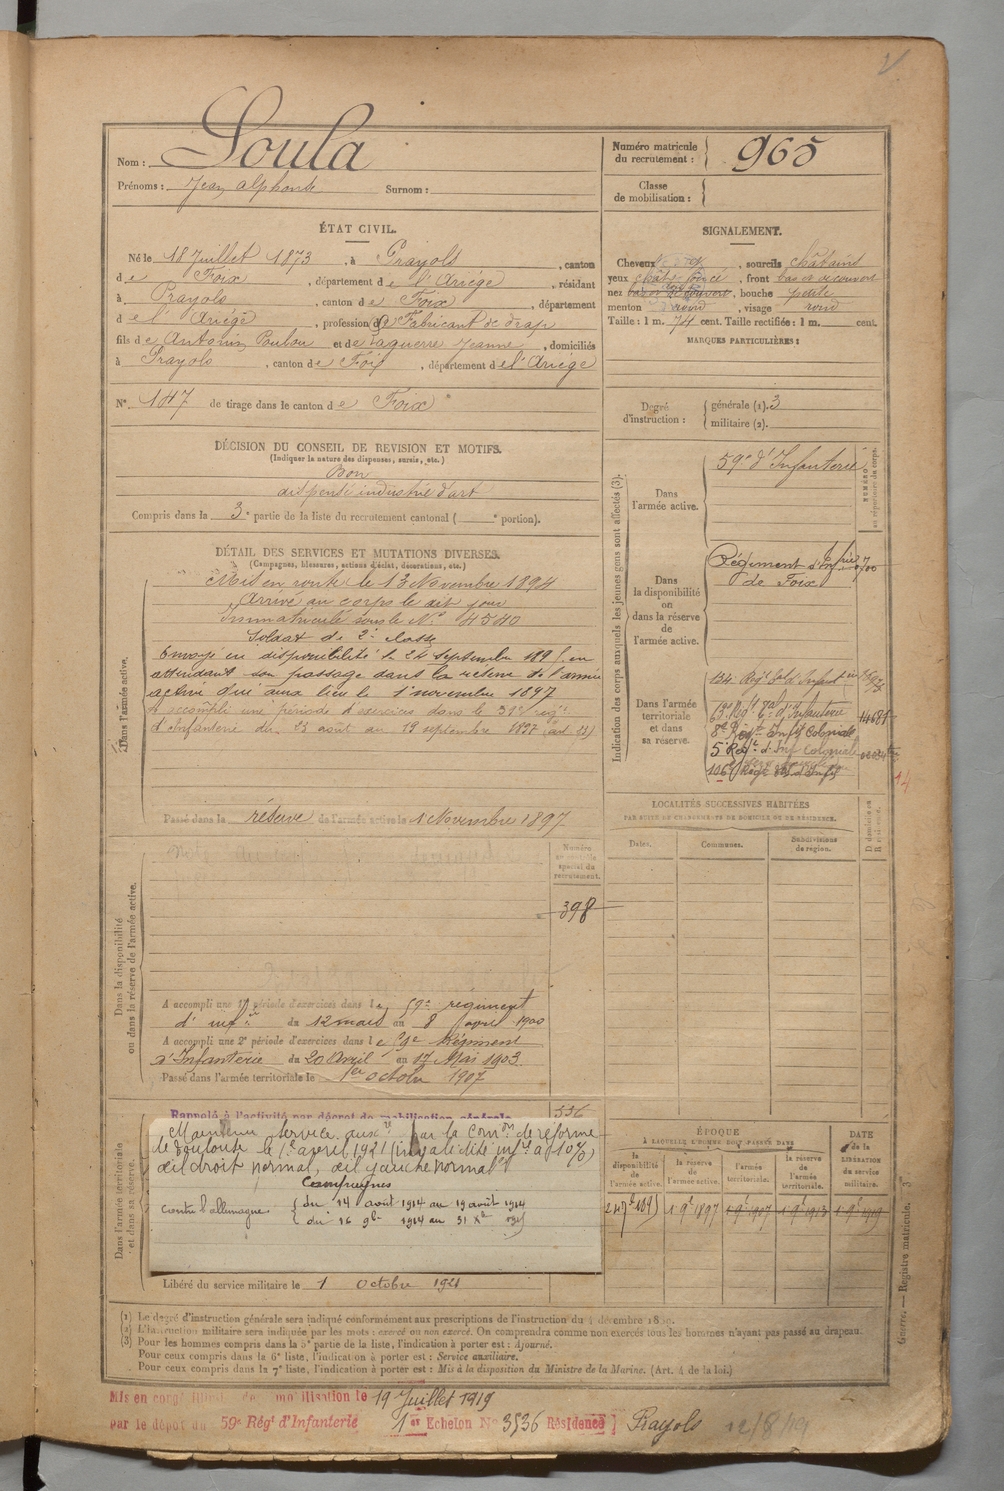 Nom : Soula
Prénoms : Jean Alphonse Surnom :
Numéro matricule du recrutement : 965
Classe de mobilisation :
ÉTAT CIVIL.
Né le 18 Juillet 1873, à Prayols, canton
de Foix, département de l'Ariège, résidant
à Prayols, canton de Foix, département
de l'Ariège, profession de Fabricant de drap
fils de Antonin Poulou et de Laguerre Jeanne, domiciliés
à Prayols, canton de Foix, département de l'Ariège
N° 147 de tirage dans le canton de Foix
SIGNALEMENT.
Cheveux, sourcils châtains
yeux, front bas et découvert
nez, bouche petite
menton rond, visage rond
Taille : 1 m. 74 cent. Taille rectifiée : 1 m. cent.
MARQUES PARTICULIÈRES :
Degré d'instruction : générale (1). 3
militaire (2).
DÉCISION DU CONSEIL DE REVISION ET MOTIFS.
(Indiquer la nature des dispenses, sursis, etc.)
Bon
dispensé industrie d'art
Compris dans la 3e partie de la liste du recrutement cantonal ( e portion).
DÉTAIL DES SERVICES ET MUTATIONS DIVERSES.
(Campagnes, blessures, actions d'éclat, décorations, etc.)
Dans l'armée active.
Mis en route le 13 Novembre 1894
Arrivé au corps le dit jour
Immatriculé sous le N° 4540
Soldat de 2e classe
Envoyé en disponibilité le 24 septembre 1895 en
attendant son passage dans la réserve de l'armée
active qui aura lieu le 1er novembre 1897
A accompli une période d'exercices dans le 59e rég.
d'Infanterie du 23 août au 19 septembre 1897
Passé dans la réserve de l'armée active le 1 Novembre 1897
Indication des corps auxquels les jeunes gens sont affectés (3).
NUMÉRO au répertoire du corps.
Dans l'armée active.
59e d'Infanterie
Dans la disponibilité ou dans la réserve de l'armée active.
Régiment d'Infrie
de Foix
Dans l'armée territoriale et dans sa réserve.
134e Régt Infanterie
8e Régt Infie Coloniale
5e Régt d'Inf Coloniale
LOCALITÉS SUCCESSIVES HABITÉES
PAR SUITE DE CHANGEMENTS DE DOMICILE OU DE RÉSIDENCE.
Dates. Communes. Subdivisions de région. D domicile ou R résidence.
Dans la disponibilité ou dans la réserve de l'armée active.
Numéro au contrôle spécial du recrutement.
398
A accompli une 1re période d'exercices dans le 59e régiment
d'infie du 12 mars au 8 avril 1900
A accompli une 2e période d'exercices dans le 59e Régiment
d'Infanterie du 20 Avril au 17 Mai 1903.
Passé dans l'armée territoriale le 1er octobre 1907
Dans l'armée territoriale et dans sa réserve.
Rappelé à l'activité par décret de mobilisation générale
536
Maintenu service auxre par la Comon de réforme
de Toulouse le 1er avril 1921 (invalidité infre à 10%)
œil droit normal, œil gauche normal
Campagnes
contre l'allemagne du 14 août 1914 au 19 août 1914
du 16 9bre 1914 au 31 Xbre 1915
Libéré du service militaire le 1 octobre 1921
ÉPOQUE
À LAQUELLE L'HOMME DOIT PASSER DANS
la disponibilité de l'armée active. la réserve de l'armée active. l'armée territoriale. la réserve de l'armée territoriale.
DATE de la LIBÉRATION du service militaire.
1 9e 1897 1 9e 1907 1 9e 1913 1 9e 1919
(1) Le degré d'instruction générale sera indiqué conformément aux prescriptions de l'instruction du 4 décembre 1889.
(2) L'instruction militaire sera indiquée par les mots : exercé ou non exercé. On comprendra comme non exercés tous les hommes n'ayant pas passé au drapeau.
(3) Pour les hommes compris dans la 5e partie de la liste, l'indication à porter est : Ajourné.
Pour ceux compris dans la 6e liste, l'indication à porter est : Service auxiliaire.
Pour ceux compris dans la 7e liste, l'indication à porter est : Mis à la disposition du Ministre de la Marine. (Art. 4 de la loi.)
Registre matricule. 3
Mis en congé illimité de démobilisation le 19 Juillet 1919
par le dépôt du 59e Régt d'Infanterie 1er Echelon N° 3536 Résidence Prayols 12/8/19